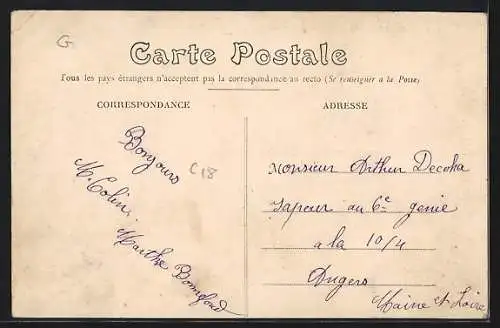 G
Carte Postale
Tous les pays étrangers n'acceptent pas la correspondance au recto (Se renseigner a la Poste)
CORRESPONDANCE
Bonjours
C18
M. Colin.
Marthe
ADRESSE
Monsieur Arthur Decoha
Sapeur au 6e genie
a la 10/4
Angers
Maine et Loire